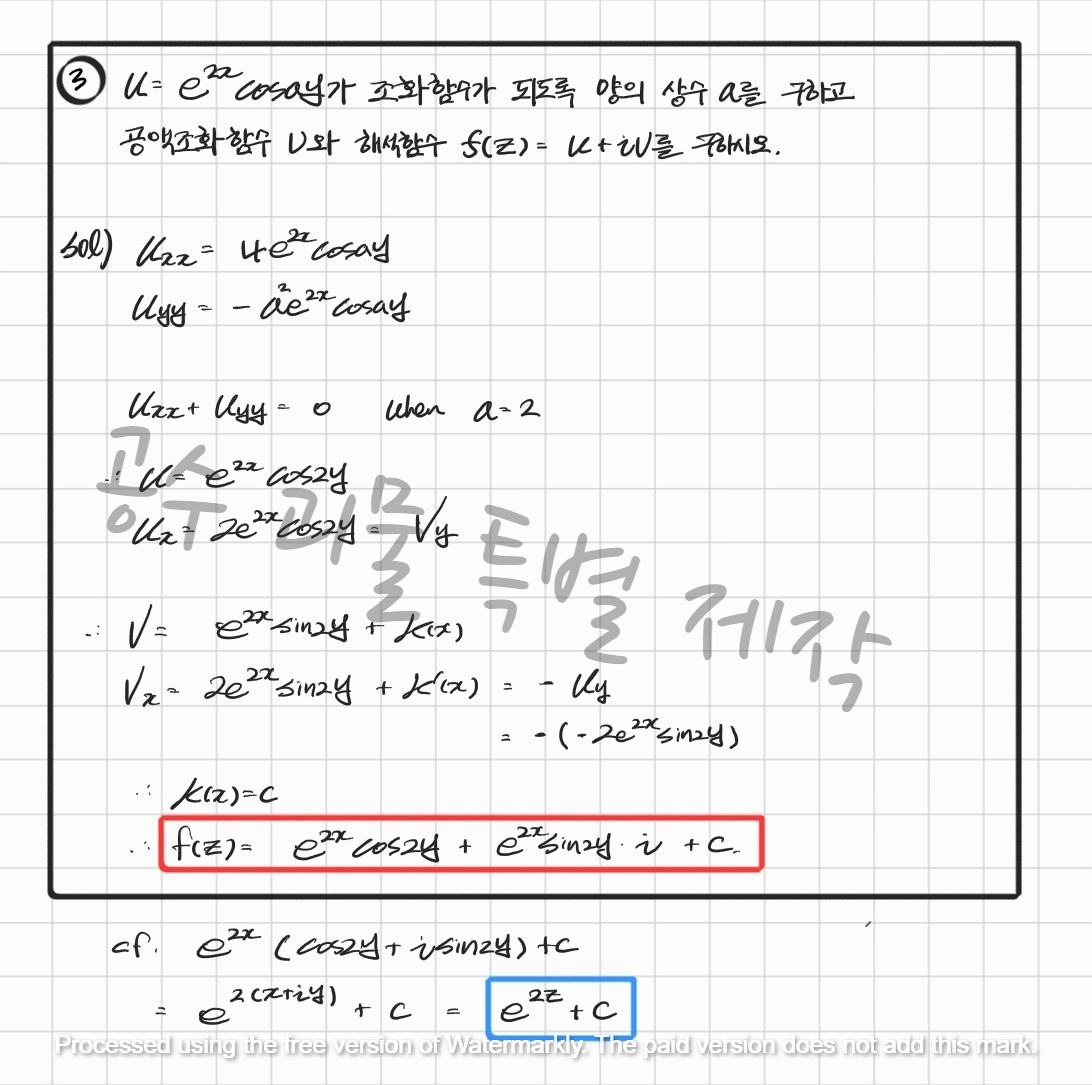 ③ u = e^{2x}cosay가 조화함수가 되도록 양의 상수 a를 구하고
공액조화함수 v와 해석함수 f(z) = u + iv를 구하시오.
sol) u_{xx} = 4e^{2x}cosay
u_{yy} = - a^2e^{2x}cosay
u_{xx} + u_{yy} = 0 when a = 2
∴ u = e^{2x} cos2y
u_x = 2e^{2x}cos2y = V_y
공수 괴물 특별 제작
∴ V = e^{2x}sin2y + k(x)
V_x = 2e^{2x}sin2y + k'(x) = - u_y
= - (-2e^{2x}sin2y)
∴ k(x) = c
∴ f(z) = e^{2x}cos2y + e^{2x}sin2y · i + c.
cf. e^{2x} (cos2y + isin2y) + c
= e^{2(x+iy)} + c = e^{2z} + c
Processed using the free version of Watermarkly. The paid version does not add this mark.